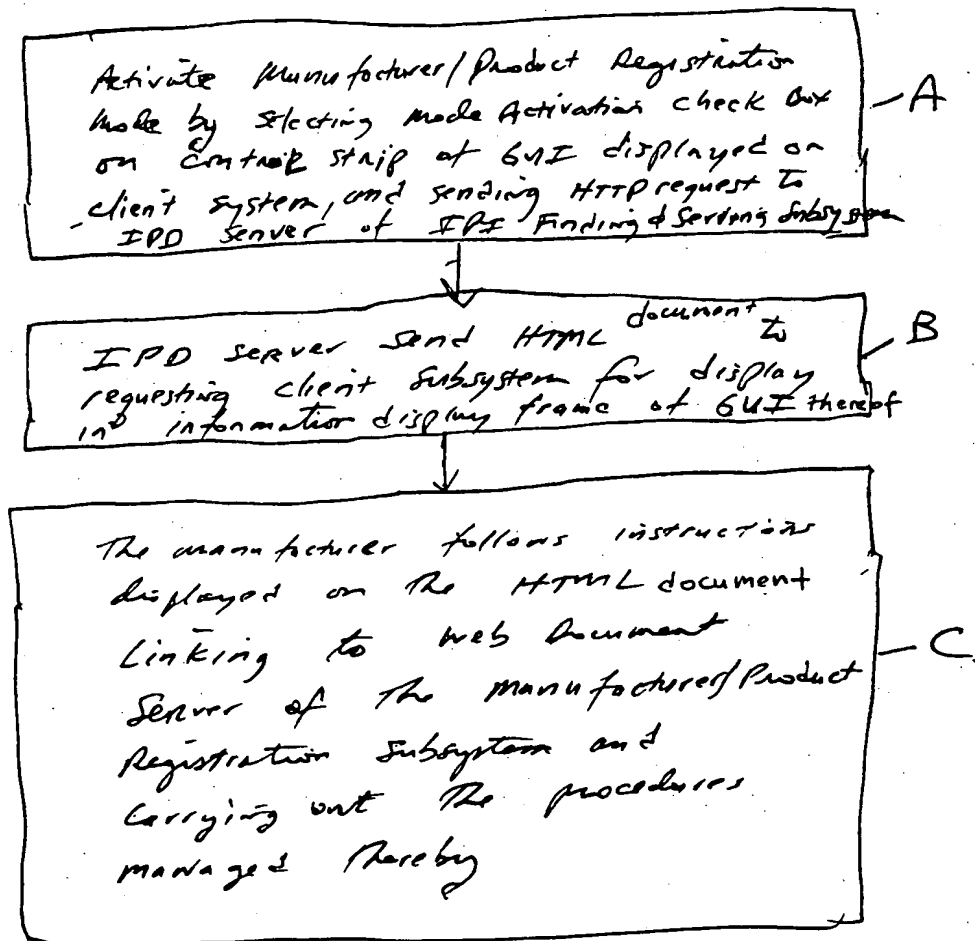 Activate Manufacturer/Product Registration
Mode by selecting mode Activation check Box
on control strip of GUI displayed on
client system, and sending HTTP request to
IPD server of IPI Finding & Serving Subsystem
A
IPD server send HTML document to
requesting client subsystem for display
in information display frame of GUI thereof
B
The manufacturer follows instructions
displayed on the HTML document
Linking to Web Document
Server of the manufacturer/Product
Registration Subsystem and
Carrying out the procedures
managed thereby
C